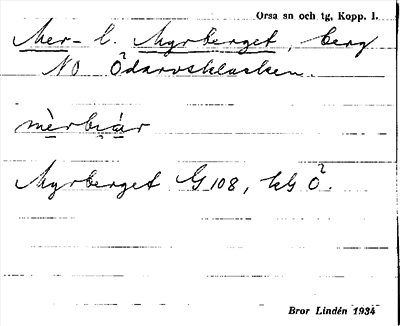 Orsa sn och tg, Kopp. l.
Mer- l. Myrberget, berg
NO Ödarvsklacken.
mèrbjár
Myrberget G 108, kG Ö.
Bror Lindén 1934